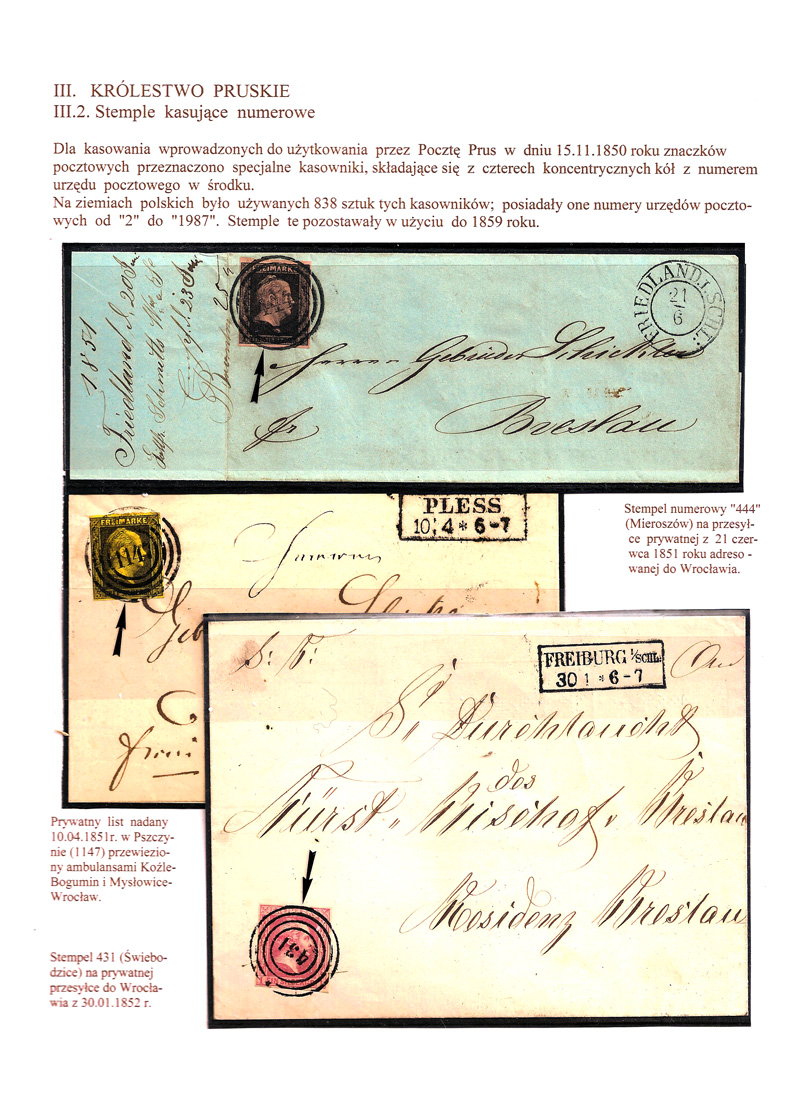 III. KRÓLESTWO PRUSKIE
III.2. Stemple kasujące numerowe
Dla kasowania wprowadzonych do użytkowania przez Pocztę Prus w dniu 15.11.1850 roku znaczków
pocztowych przeznaczono specjalne kasowniki, składające się z czterech koncentrycznych kół z numerem
urzędu pocztowego w środku.
Na ziemiach polskich było używanych 838 sztuk tych kasowników; posiadały one numery urzędów poczto-
wych od "2" do "1987". Stemple te pozostawały w użyciu do 1859 roku.
1851
Friedland
FREIMARKE
FRIEDLAND I. SCHL:
21
6
Herren Gebrüder
Breslau
Stempel numerowy "444"
(Mieroszów) na przesył-
ce prywatnej z 21 czer-
wca 1851 roku adreso -
wanej do Wrocławia.
FREIMARKE
114
PLESS
10, 4 * 6-7
FREIBURG I/SCHL.
30 1 * 6-7
Sr Durchlaucht
des
Fürst Bischof v Breslau
Residenz Breslau
431
Prywatny list nadany
10.04.1851r. w Pszczy-
nie (1147) przewiezio-
ny ambulansami Koźle-
Bogumin i Mysłowice-
Wrocław.
Stempel 431 (Świebo-
dzice) na prywatnej
przesyłce do Wrocła-
wia z 30.01.1852 r.